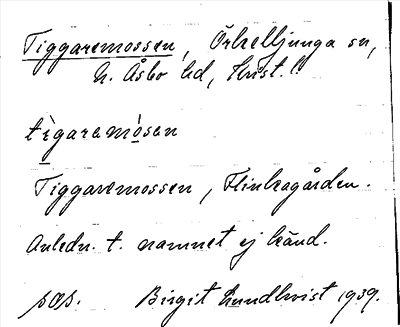 Tiggaremossen, Örkelljunga sn,
N. Åsbo hd, Krist. l.
tìgaremòsen
Tiggaremossen, Flinkagården.
Anledn. t. namnet ej känd.
Birgit Lundkvist 1939.